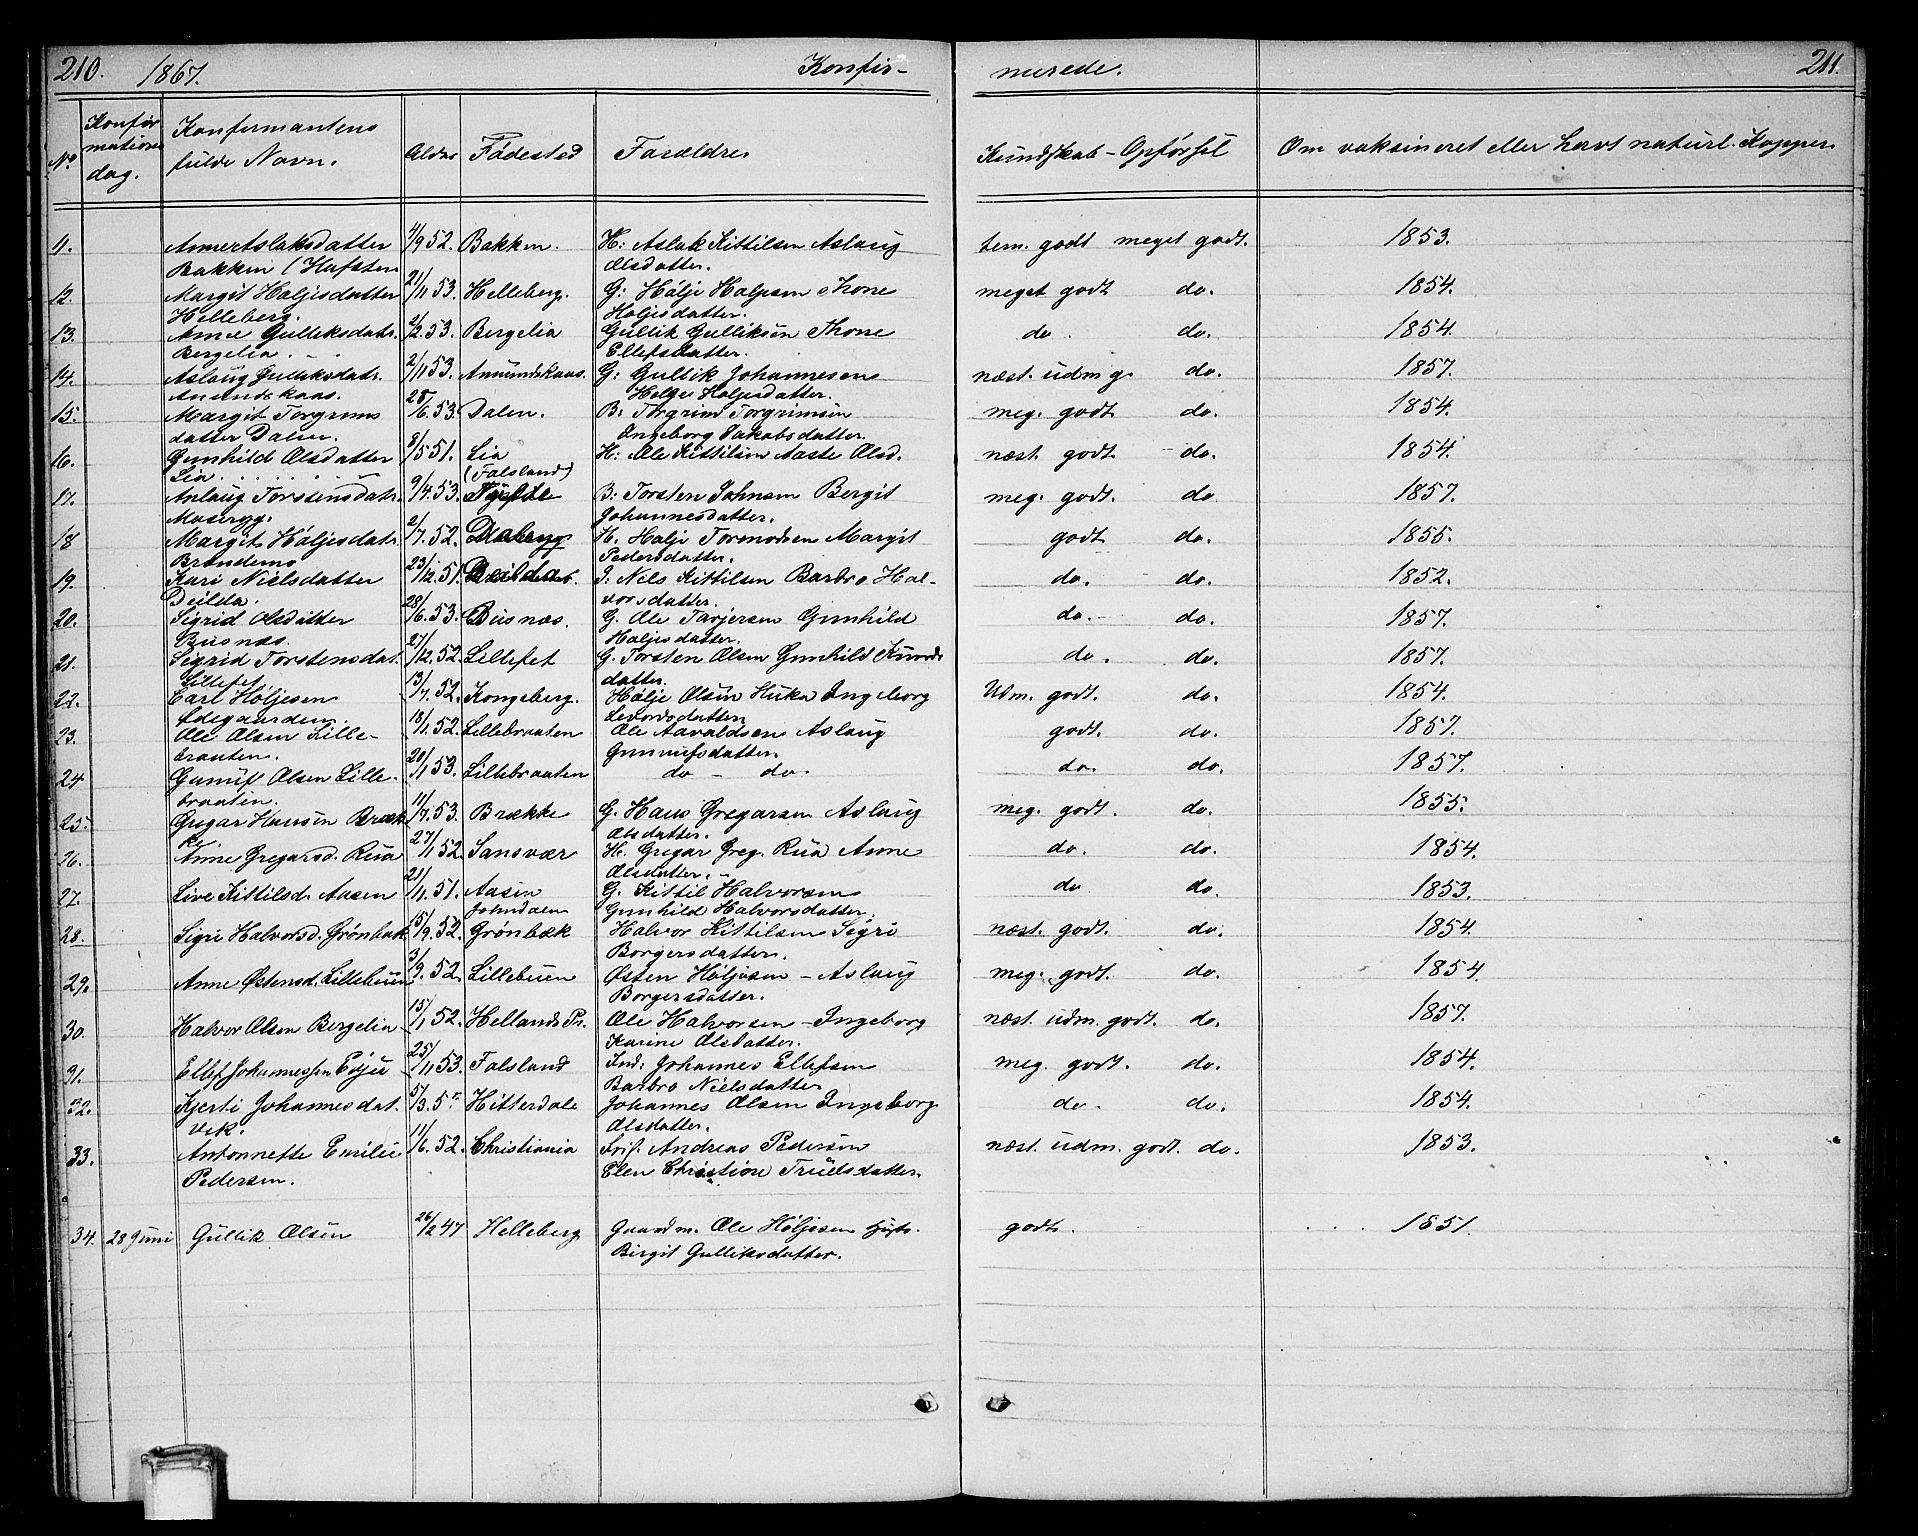 210. 1867. Konfir- merede. 211.
No Konfirmations dag. Konfirmantens fulde Navn. Alder Fødested Forældre Kundskab - Opførsel Om vaksineret eller havt naturl. Kopper.
11. Anne Aslaksdatter 4/9 52. Bakken. H: Aslak Kittilsen Aslaug tem. godt meget godt. 1853.
Bakken (Hafsten Olsdatter.
12. Margit Høljesdatter 21/11 53. Helleberg. G: Hølje Høljesen Thone meget godt do. 1854.
Helleberg. Høljesdatter.
13. Anne Gulliksdatr. 2/2 53. Bergelia Gullik Gulliksen Thone do. do. 1854.
Bergelia. Ellefsdatter.
14. Aslaug Gulliksdatr. 2/11 53. Amundskaas. G: Gullik Johannesen næst. udm g. do. 1857.
Amundskaas. Helge Høljesdatter.
15. Margit Torgrims 28/6 53. Dalen. B: Torgrim Torgrimsen meg. godt do. 1854.
datter Dalen. Ingeborg Jakobsdatter.
16. Gunhild Olsdatter 8/5 51. Lia H: Ole Kittilsen Aaste Olsd. næst. godt do. 1854.
Lia. (Falsland)
17. Aslaug Torstensdatr. 9/4. 53. B: Torsten Johnsen Bergit meg. godt. do. 1857.
Moseryg. Johannesdatter.
18 Margit Høljesdatr. 2/7. 52. H. Hølje Tormodsen Margit godt do. 1855.
Brøndemo Pedersdatter.
19. Kari Nielsdatter 23/12. 51. Deilda. I. Nels Kittilsen Barbro Hal- do. do. 1852.
Deilda. vorsdatter.
20. Sigrid Olsdatter 28/6. 53. Busnæs. G. Ole Tarjersen Gunhild do. do. 1857.
Busnæs. Høljesdatter.
21. Sigrid Torstensdat. 27/12. 52. Lilleset G. Torsten Olsen Gunhild Knuds do. do. 1857.
Lilleset. datter.
22. Carl Høljesen 13/7. 52. Kongsberg. Hølje Olsen Huka Ingeborg Udm. godt. do. 1854.
Ødegaarden. Levordsdatter
23. Ole Olsen Lille- 18/1. 52. Lillebraaten Ole Aavaldsen Aslaug godt. do. 1857.
braaten. Gunnufsdatter
24 Gunuff Olsen Lille- 20/1 53. Lillebraaten do - do. do. do. 1857.
braaten.
25. Gregar Hansen Bræk 11/7. 53. Brække G. Hans Gregarsen Aslaug meg. godt. do. 1855.
ke. Olsdatter.
26. Anne Gregarsd. Rua 27/1 52. Sansvær H. Gregar Greg. Rua Anne do. do. 1854.
Olsdatter.
27. Live Kittilsd. Aasen 21/11. 51. Aasen G. Kittil Halvorsen do do. 1853.
Johndalen Gunhild Halvorsdatter.
28. Sigri Halvorsd. Grønbæk 15/9. 52. Grønbæk Halvor Kittilsen Sigri næst. godt. do. 1854.
Borgersdatter.
29. Anne Østensd. Lillebuen 3/9. 52. Lillebuen Østen Høljesen - Aslaug meg. godt. do. 1854.
Borgersdatter.
30. Halvor Olsen Bergelia 15/1 52. Hellands Pr. Ole Halvorsen - Ingeborg næst. udm. godt. do. 1857.
Karine Olsdatter.
31. Ellef Johannessen Eøju 25/11 53. Falsland Ind: Johannes Ellefsen meg. godt. do. 1854.
Barbro Nielsdatter
32. Kjerti Johannesdat. 5/3. Hitterdale Johannes Olsen Ingeborg do. do. 1854.
vik. Olsdatter.
33. Antonnette Emilie 11/6. 52. Christiania Snif. Andreas Pedersen næst. udm. godt. do. 1853.
Pedersen. Elen Christine Truelsdatter.
34. 28 Juni Gullik Olsen 26/2 47 Helleberg Gaardm. Ole Høljesen godt. 1851.
Birgit Gulliksdatter.